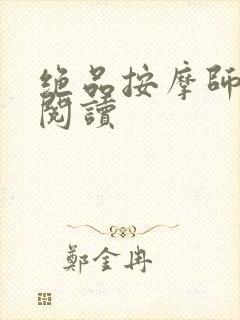 绝品按摩師
閱讀
鄭金冉